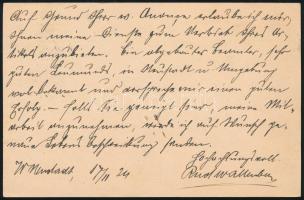 Auf Grund Ihrer w. Annonce erlaube ich mir,
Ihnen meine Dienste zum Vertrieb Ihres Ar-
tikels anzubieten. Bin abgebauter Beamter, sehr
guten Leumunds, in Neustadt u Umgebung
wol bekannt und verspreche mir einen guten
Erfolg. – Falls Sie geneigt sind, meine Mit-
arbeit anzunehmen, würde ich auf Wunsch ge-
naue Lebensbeschreibung senden.
Hochachtungsvoll
W Neustadt, 17/11 24